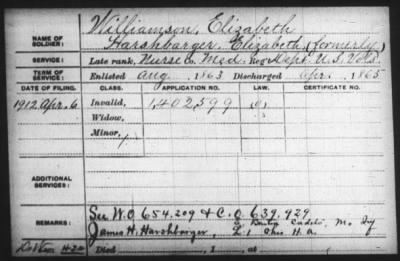 Williamson, Elizabeth
NAME OF SOLDIER: Harshbarger, Elizabeth (formerly)
SERVICE: Late rank, Nurse Co. Med. Reg't Dept. U.S. Vols.
TERM OF SERVICE: Enlisted Aug. 1863 Discharged Apr. 1865
DATE OF FILING. CLASS. APPLICATION NO. LAW. CERTIFICATE NO.
1912 Apr. 6 Invalid, 1402599
Widow,
Minor,
ADDITIONAL SERVICES:
See W.O 654.209 & C.O. 639.929
REMARKS: James H. Harshbarger, L. 1 Ohio H.A.
Died , 1 , at